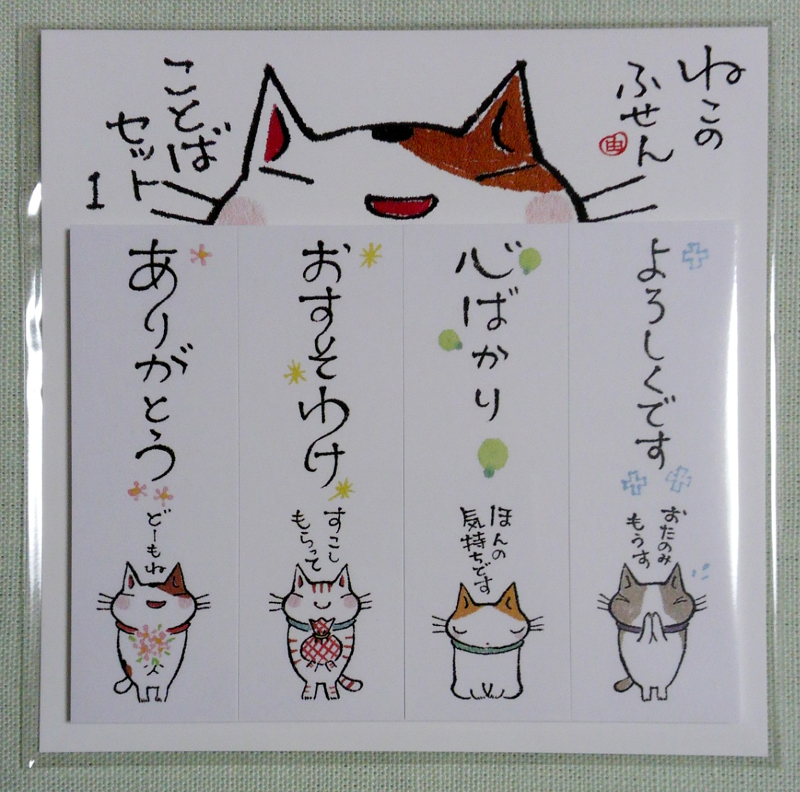 ねこの
ふせん
ことば
セット
1
よろしくです
おたのみ
もうす
心ばかり
ほんの
気持ちです
おすそわけ
すこし
もらって
ありがとう
どーもね